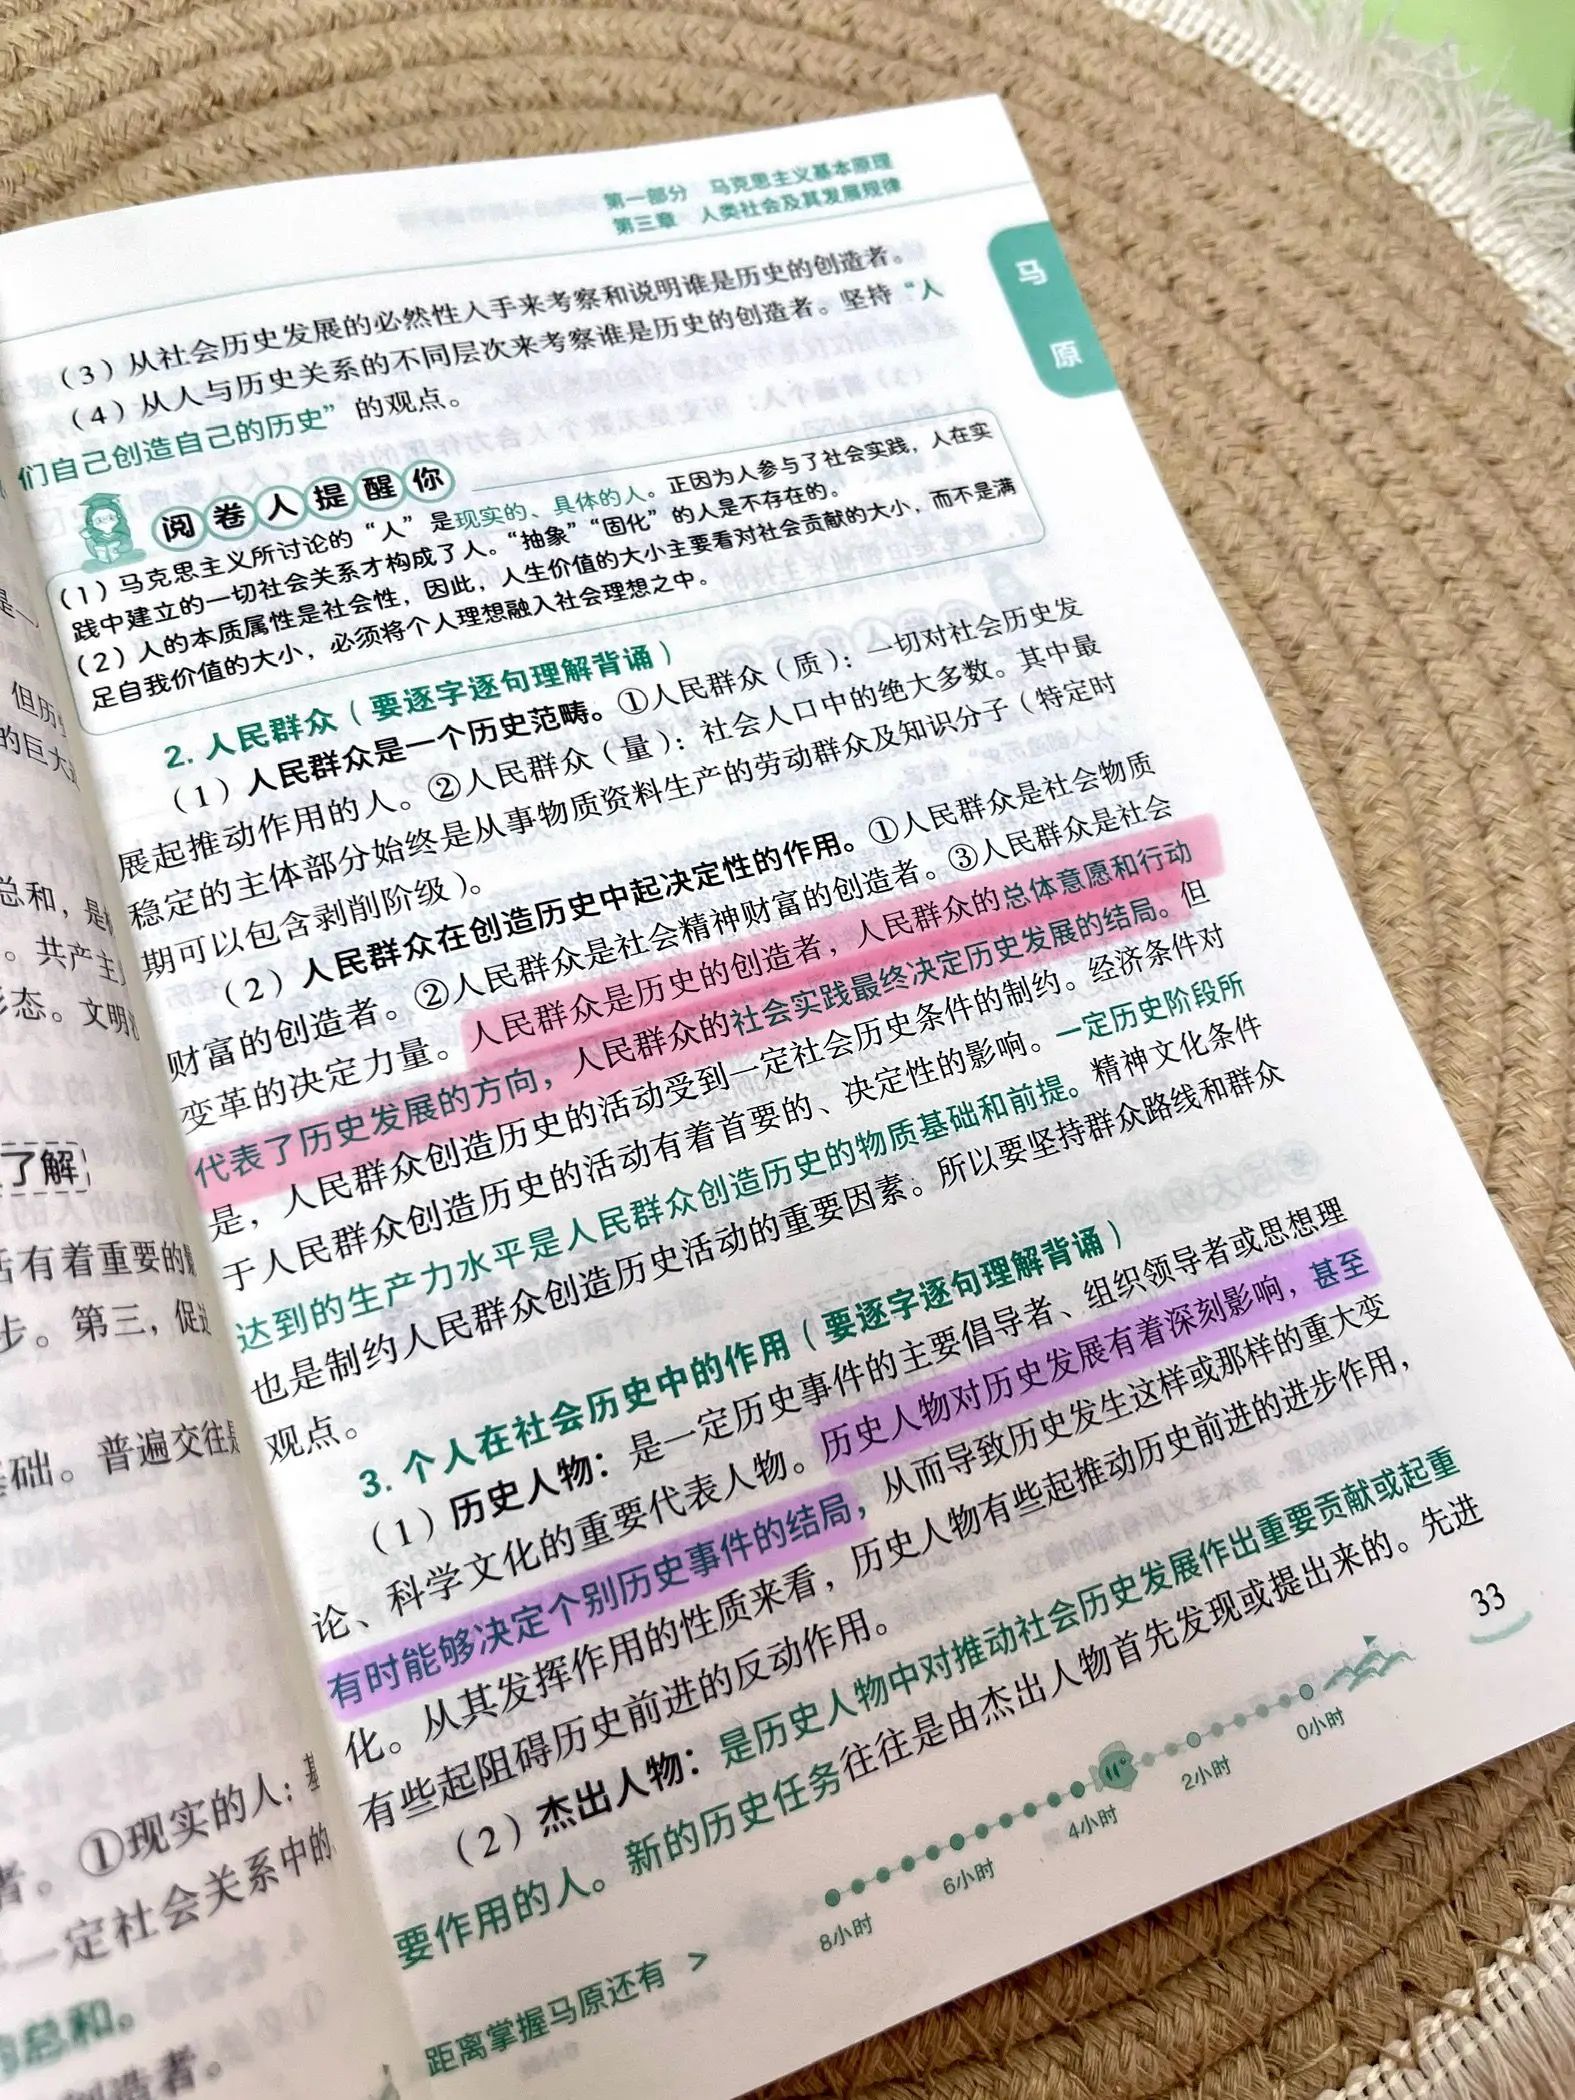 第一部分 马克思主义基本原理
第三章 人类社会及其发展规律
马
原
（3）从社会历史发展的必然性入手来考察和说明谁是历史的创造者。
（4）从人与历史关系的不同层次来考察谁是历史的创造者。坚持“人
们自己创造自己的历史”的观点。
阅卷人提醒你
（1）马克思主义所讨论的“人”是现实的、具体的人。正因为人参与了社会实践，人在实
践中建立的一切社会关系才构成了人。“抽象”“固化”的人是不存在的。
（2）人的本质属性是社会性，因此，人生价值的大小主要看对社会贡献的大小，而不是满
足自我价值的大小，必须将个人理想融入社会理想之中。
2. 人民群众（要逐字逐句理解背诵）
（1）人民群众是一个历史范畴。①人民群众（质）：一切对社会历史发
展起推动作用的人。②人民群众（量）：社会人口中的绝大多数。其中最
稳定的主体部分始终是从事物质资料生产的劳动群众及知识分子（特定时
期可以包含剥削阶级）。
（2）人民群众在创造历史中起决定性的作用。①人民群众是社会物质
财富的创造者。②人民群众是社会精神财富的创造者。③人民群众是社会
变革的决定力量。人民群众是历史的创造者，人民群众的总体意愿和行动
代表了历史发展的方向，人民群众的社会实践最终决定历史发展的结局。但
是，人民群众创造历史的活动受到一定社会历史条件的制约。经济条件对
于人民群众创造历史的活动有着首要的、决定性的影响。一定历史阶段所
达到的生产力水平是人民群众创造历史的物质基础和前提。精神文化条件
也是制约人民群众创造历史活动的重要因素。所以要坚持群众路线和群众
观点。
3. 个人在社会历史中的作用（要逐字逐句理解背诵）
（1）历史人物：是一定历史事件的主要倡导者、组织领导者或思想理
论、科学文化的重要代表人物。历史人物对历史发展有着深刻影响，甚至
有时能够决定个别历史事件的结局，从而导致历史发生这样或那样的重大变
化。从其发挥作用的性质来看，历史人物有些起推动历史前进的进步作用，
有些起阻碍历史前进的反动作用。
（2）杰出人物：是历史人物中对推动社会历史发展作出重要贡献或起重
要作用的人。新的历史任务往往是由杰出人物首先发现或提出来的。先进
33
距离掌握马原还有 >
8小时
6小时
4小时
2小时
0小时
但历
的巨大
总和，是
。共产主
形态。文明
了解
活有着重要的
步。第三，促进
基础。普遍交往
①现实的人：基
者。
一定社会关系中的
的总和。
创造者。